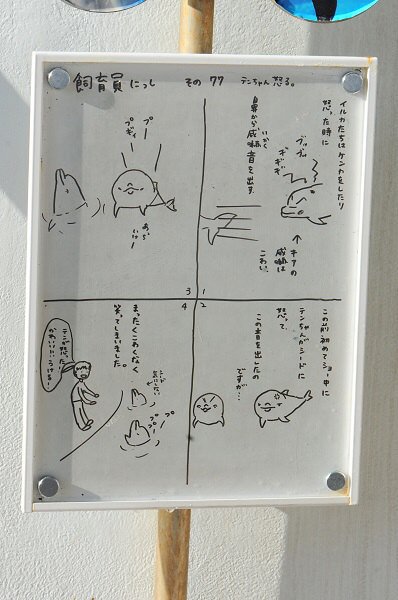 飼育員にっし その77 テンちゃん怒る。
1
イルカたちはケンカをしたり
怒った時に
鼻から威嚇音を出す。
いかく
ブッブッ
ギギギ
↑
キタの
威嚇は
こわい。
2
この前初めてショー中に
テンちゃんがシードに
怒って、
この音を出したの
ですが…
3
プー
プギィ
あっち
いけー
4
まったくこわくなく
笑ってしまいました。
シード
気にしない
プ
プー
プ
テンが怒った
かわいい
うけるー